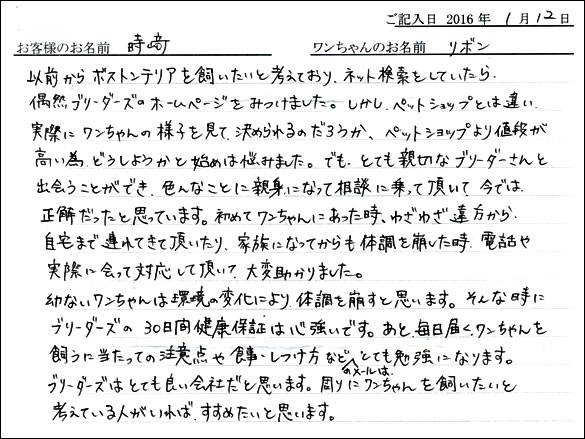 ご記入日 2016 年 1 月 12 日
お客様のお名前 時﨑 ワンちゃんのお名前 リボン
以前からボストンテリアを飼いたいと考えており、ネット検索をしていたら、
偶然ブリーダーズのホームページをみつけました。しかし、ペットショップとは違い、
実際にワンちゃんの様子を見て、決められるのだろうか、ペットショップより値段が
高い為、どうしようかと始めは悩みました。でも、とても親切なブリーダーさんと
出会うことができ、色んなことに親身になって相談に乗って頂いて、今では、
正解だったと思っています。初めてワンちゃんにあった時、わざわざ遠方から、
自宅まで連れてきて頂いたり、家族になってからも体調を崩した時、電話や
実際に会って対応して頂いて、大変助かりました。
幼ないワンちゃんは環境の変化により、体調を崩すと思います。そんな時に
ブリーダーズの30日間健康保証は心強いです。あと、毎日届く、ワンちゃんを
飼うに当たっての注意点や食事・しつけ方など、のメールは、とても勉強になります。
ブリーダーズはとても良い会社だと思います。周りにワンちゃんを飼いたいと
考えている人がいれば、すすめたいと思います。